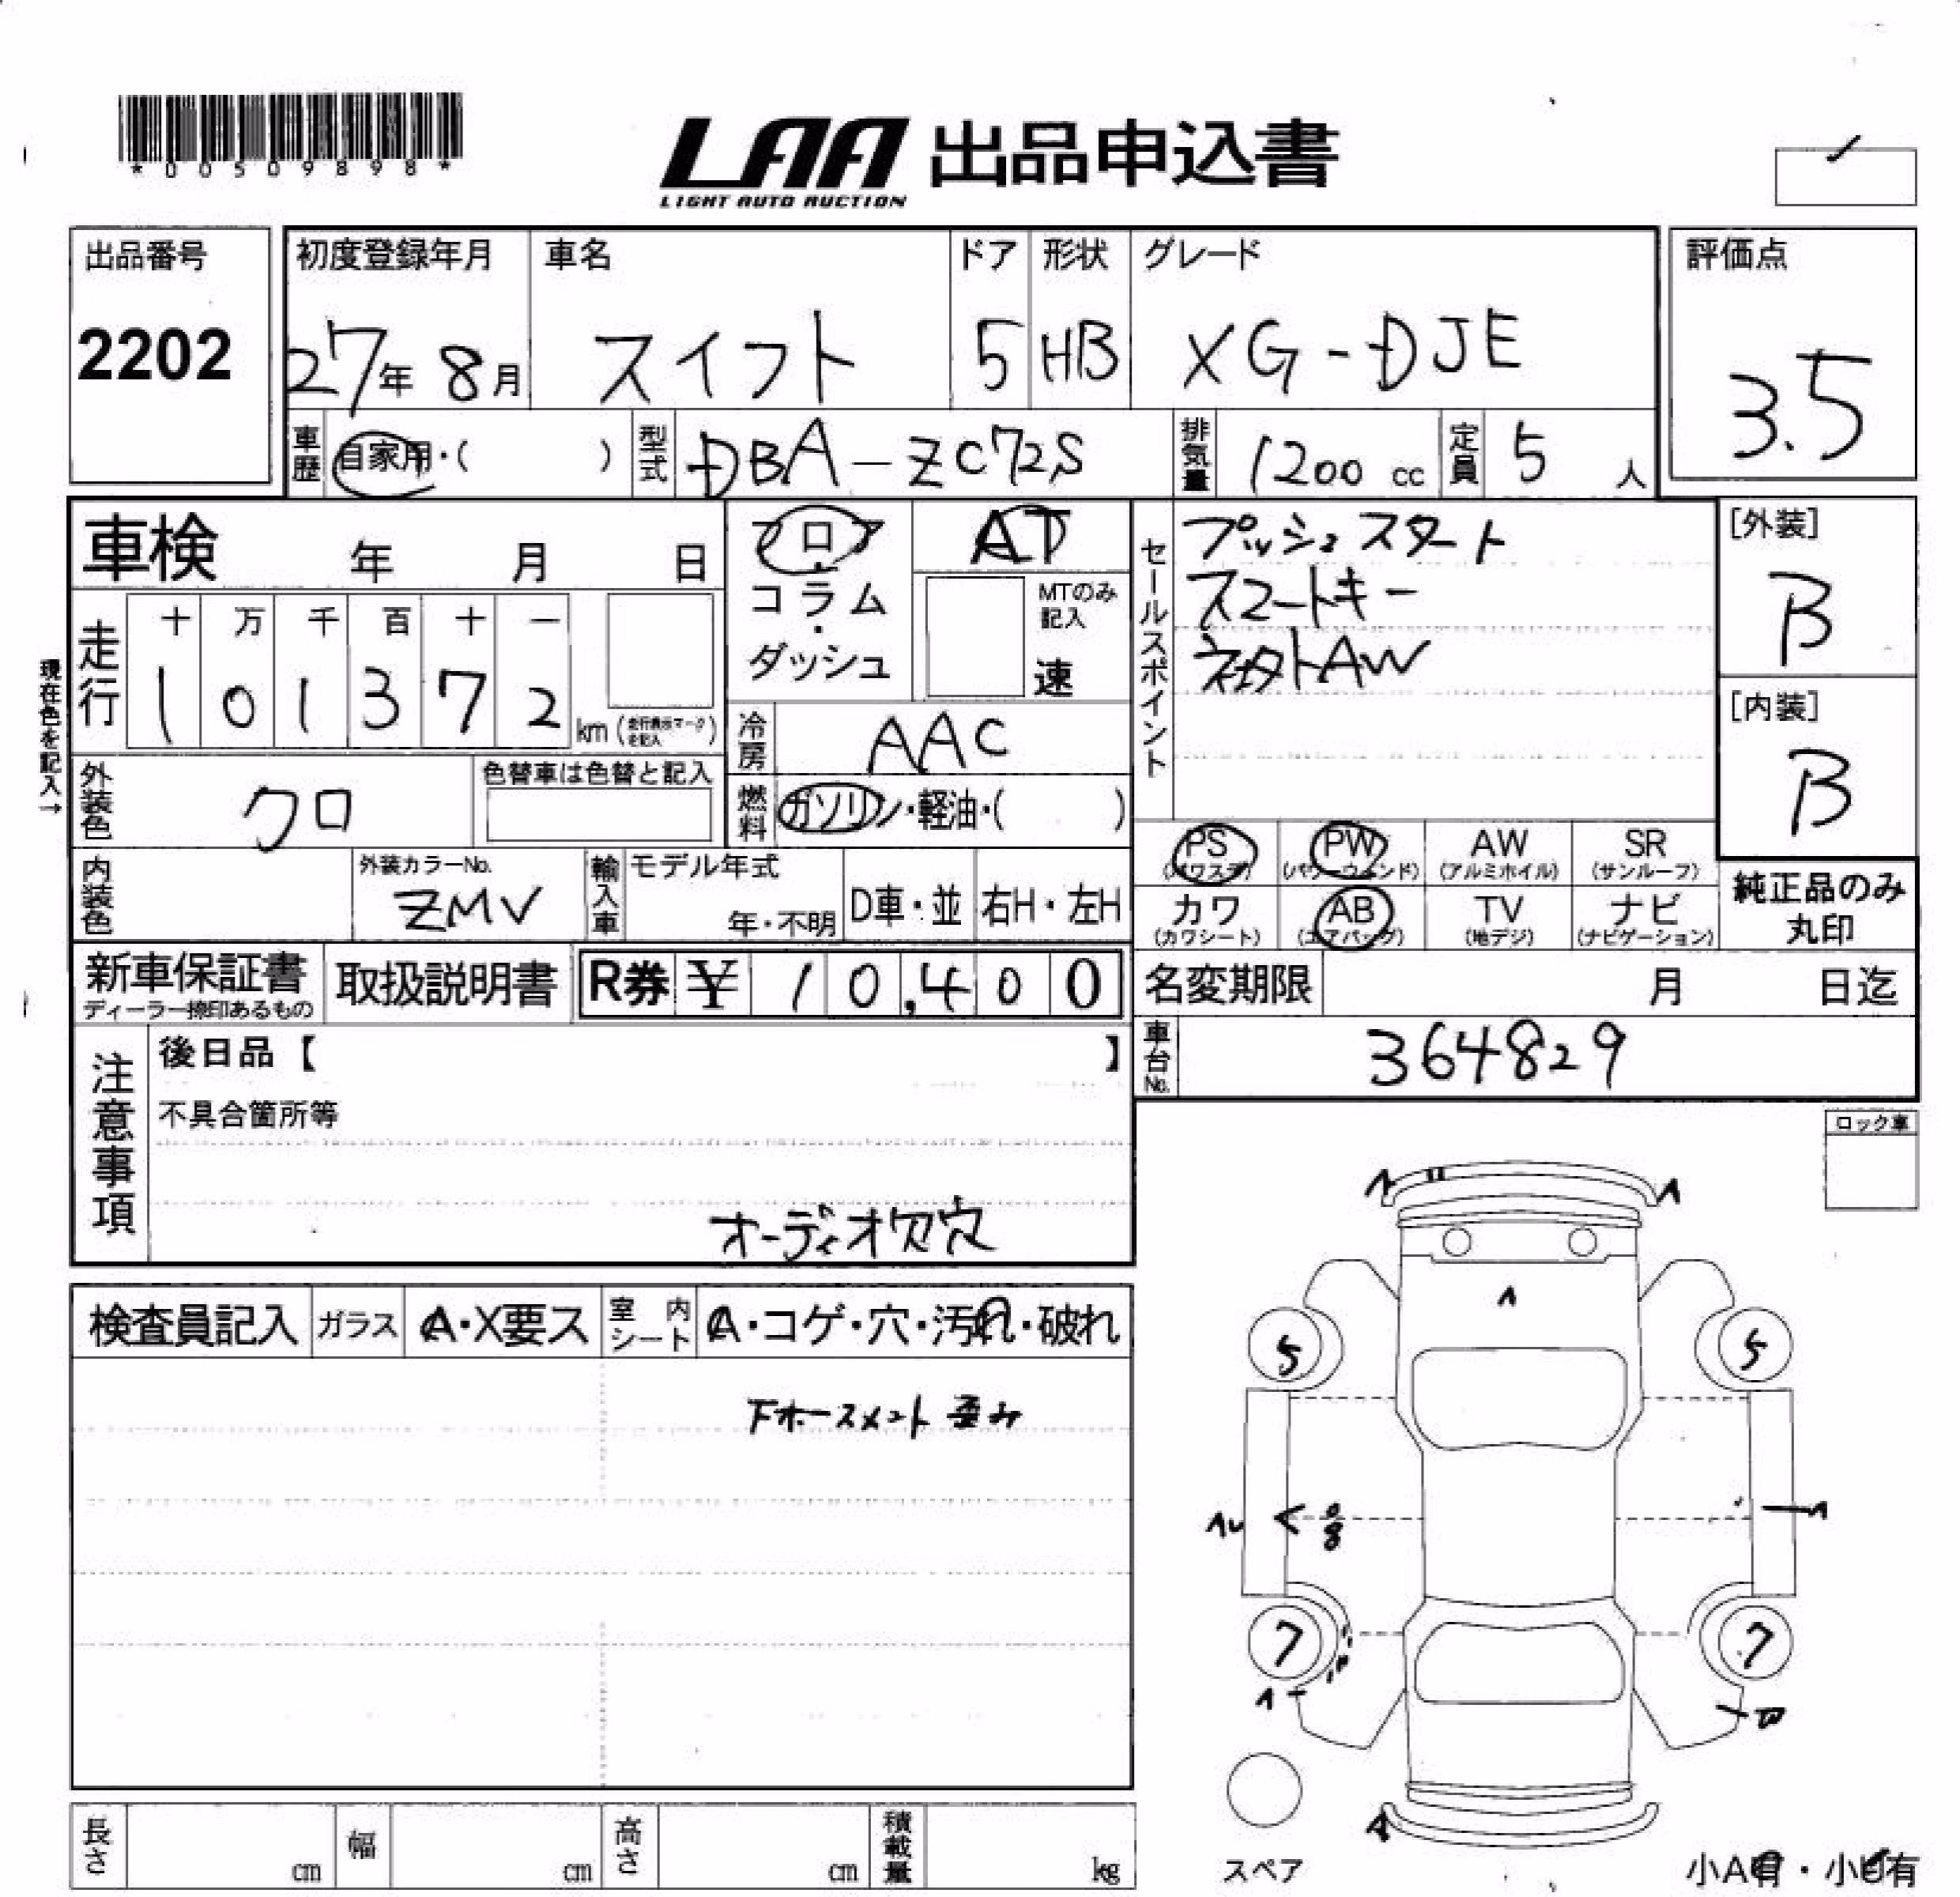 *00509898*
LAA 出品申込書
LIGHT AUTO AUCTION
出品番号
2202
初度登録年月
27年 8月
車名
スイフト
ドア
5
形状
HB
グレード
XG-DJE
評価点
3.5
車歴
自家用・( )
型式
DBA-ZC72S
排気量
1200 cc
定員
5 人
車検 年 月 日
走行
十 万 千 百 十 一
1 0 1 3 7 2
km (走行表示マークを記入)
現在色を記入→
フロア
・
コラム
・
ダッシュ
AT
MTのみ記入
速
冷房
AAC
燃料
ガソリン・軽油・( )
外装色
クロ
色替車は色替と記入
内装色
外装カラーNo.
ZMV
輸入車
モデル年式
年・不明
D車・並
右H・左H
セールスポイント
プッシュスタート
スマートキー
AW
[外装]
B
[内装]
B
PS
(パワステ)
PW
(パワーウィンド)
AW
(アルミホイル)
SR
(サンルーフ)
カワ
(カワシート)
AB
(エアバッグ)
TV
(地デジ)
ナビ
(ナビゲーション)
純正品のみ
丸印
新車保証書
ディーラー捺印あるもの
取扱説明書
R券 ¥ 10,400
名変期限 月 日迄
車台No.
364829
注意事項
後日品【 】
不具合箇所等
オーディオ欠穴
ロック車
検査員記入
ガラス
A・X要ス
室内シート
A・コゲ・穴・汚れ・破れ
下ホースメント歪み
A
A
A
5
5
7
7
A
A
A
スペア
小A有・小U有
長さ cm
幅 cm
高さ cm
積載量 kg